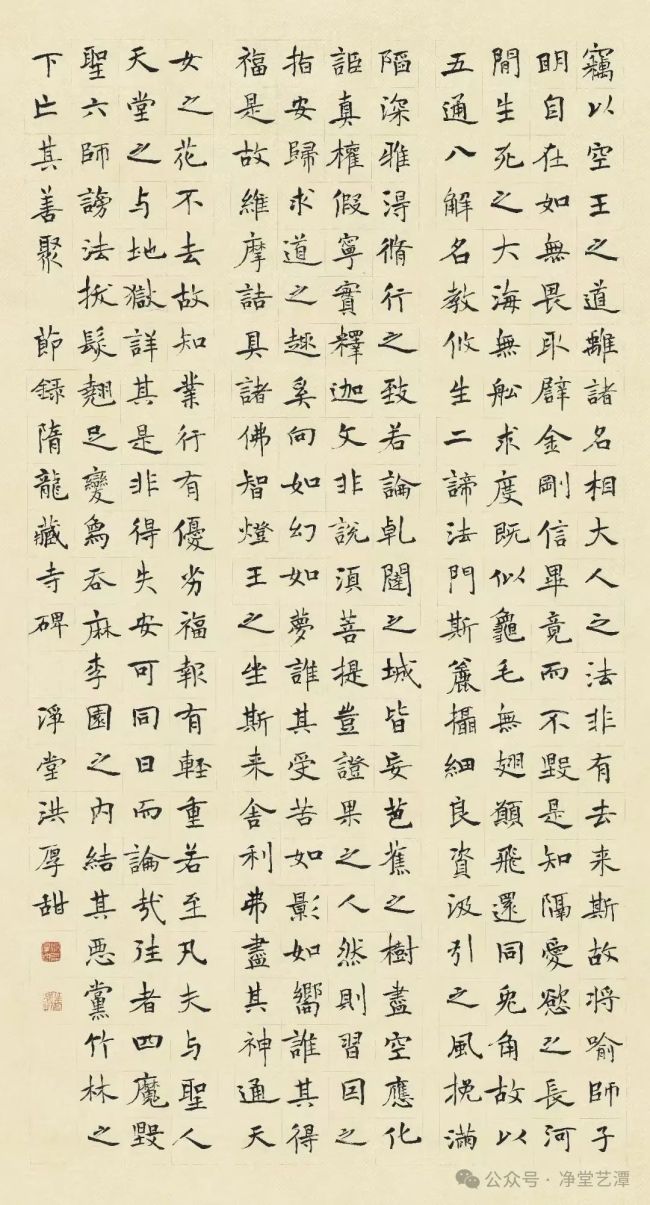 竊以空王之道離諸名相大人之法非有去来斯故将喻師子
明自在如無畏取辟金剛信畢竟而不毀是知隔愛慾之長河
間生死之大海無舩求度既似龜毛無翅願飛還同兎角故以
五通八解名教攸生二諦法門斯簏攝細良資汲引之風挽滿
陷深雅淂脩行之致若論乹闥之城皆妄芭蕉之樹盡空應化
詎真權假寧實釋迦文非說湏菩提豈證果之人然則習因之
指安歸求道之趣奚向如幻如夢誰其受苦如影如嚮誰其得
福是故維摩詰具諸佛智燈王之坐斯来舎利弗盡其神通天
女之花不去故知業行有優劣福報有軽重若至凡夫与聖人
天堂之与地獄詳其是非得失安可同日而論㦲往者四魔毀
聖六師謗法拔髮翹足變鳥吞麻李園之内結其悪黨竹林之
下亡其善聚 節録隋龍藏寺碑 淨堂洪厚甜
公众号·净堂艺潭